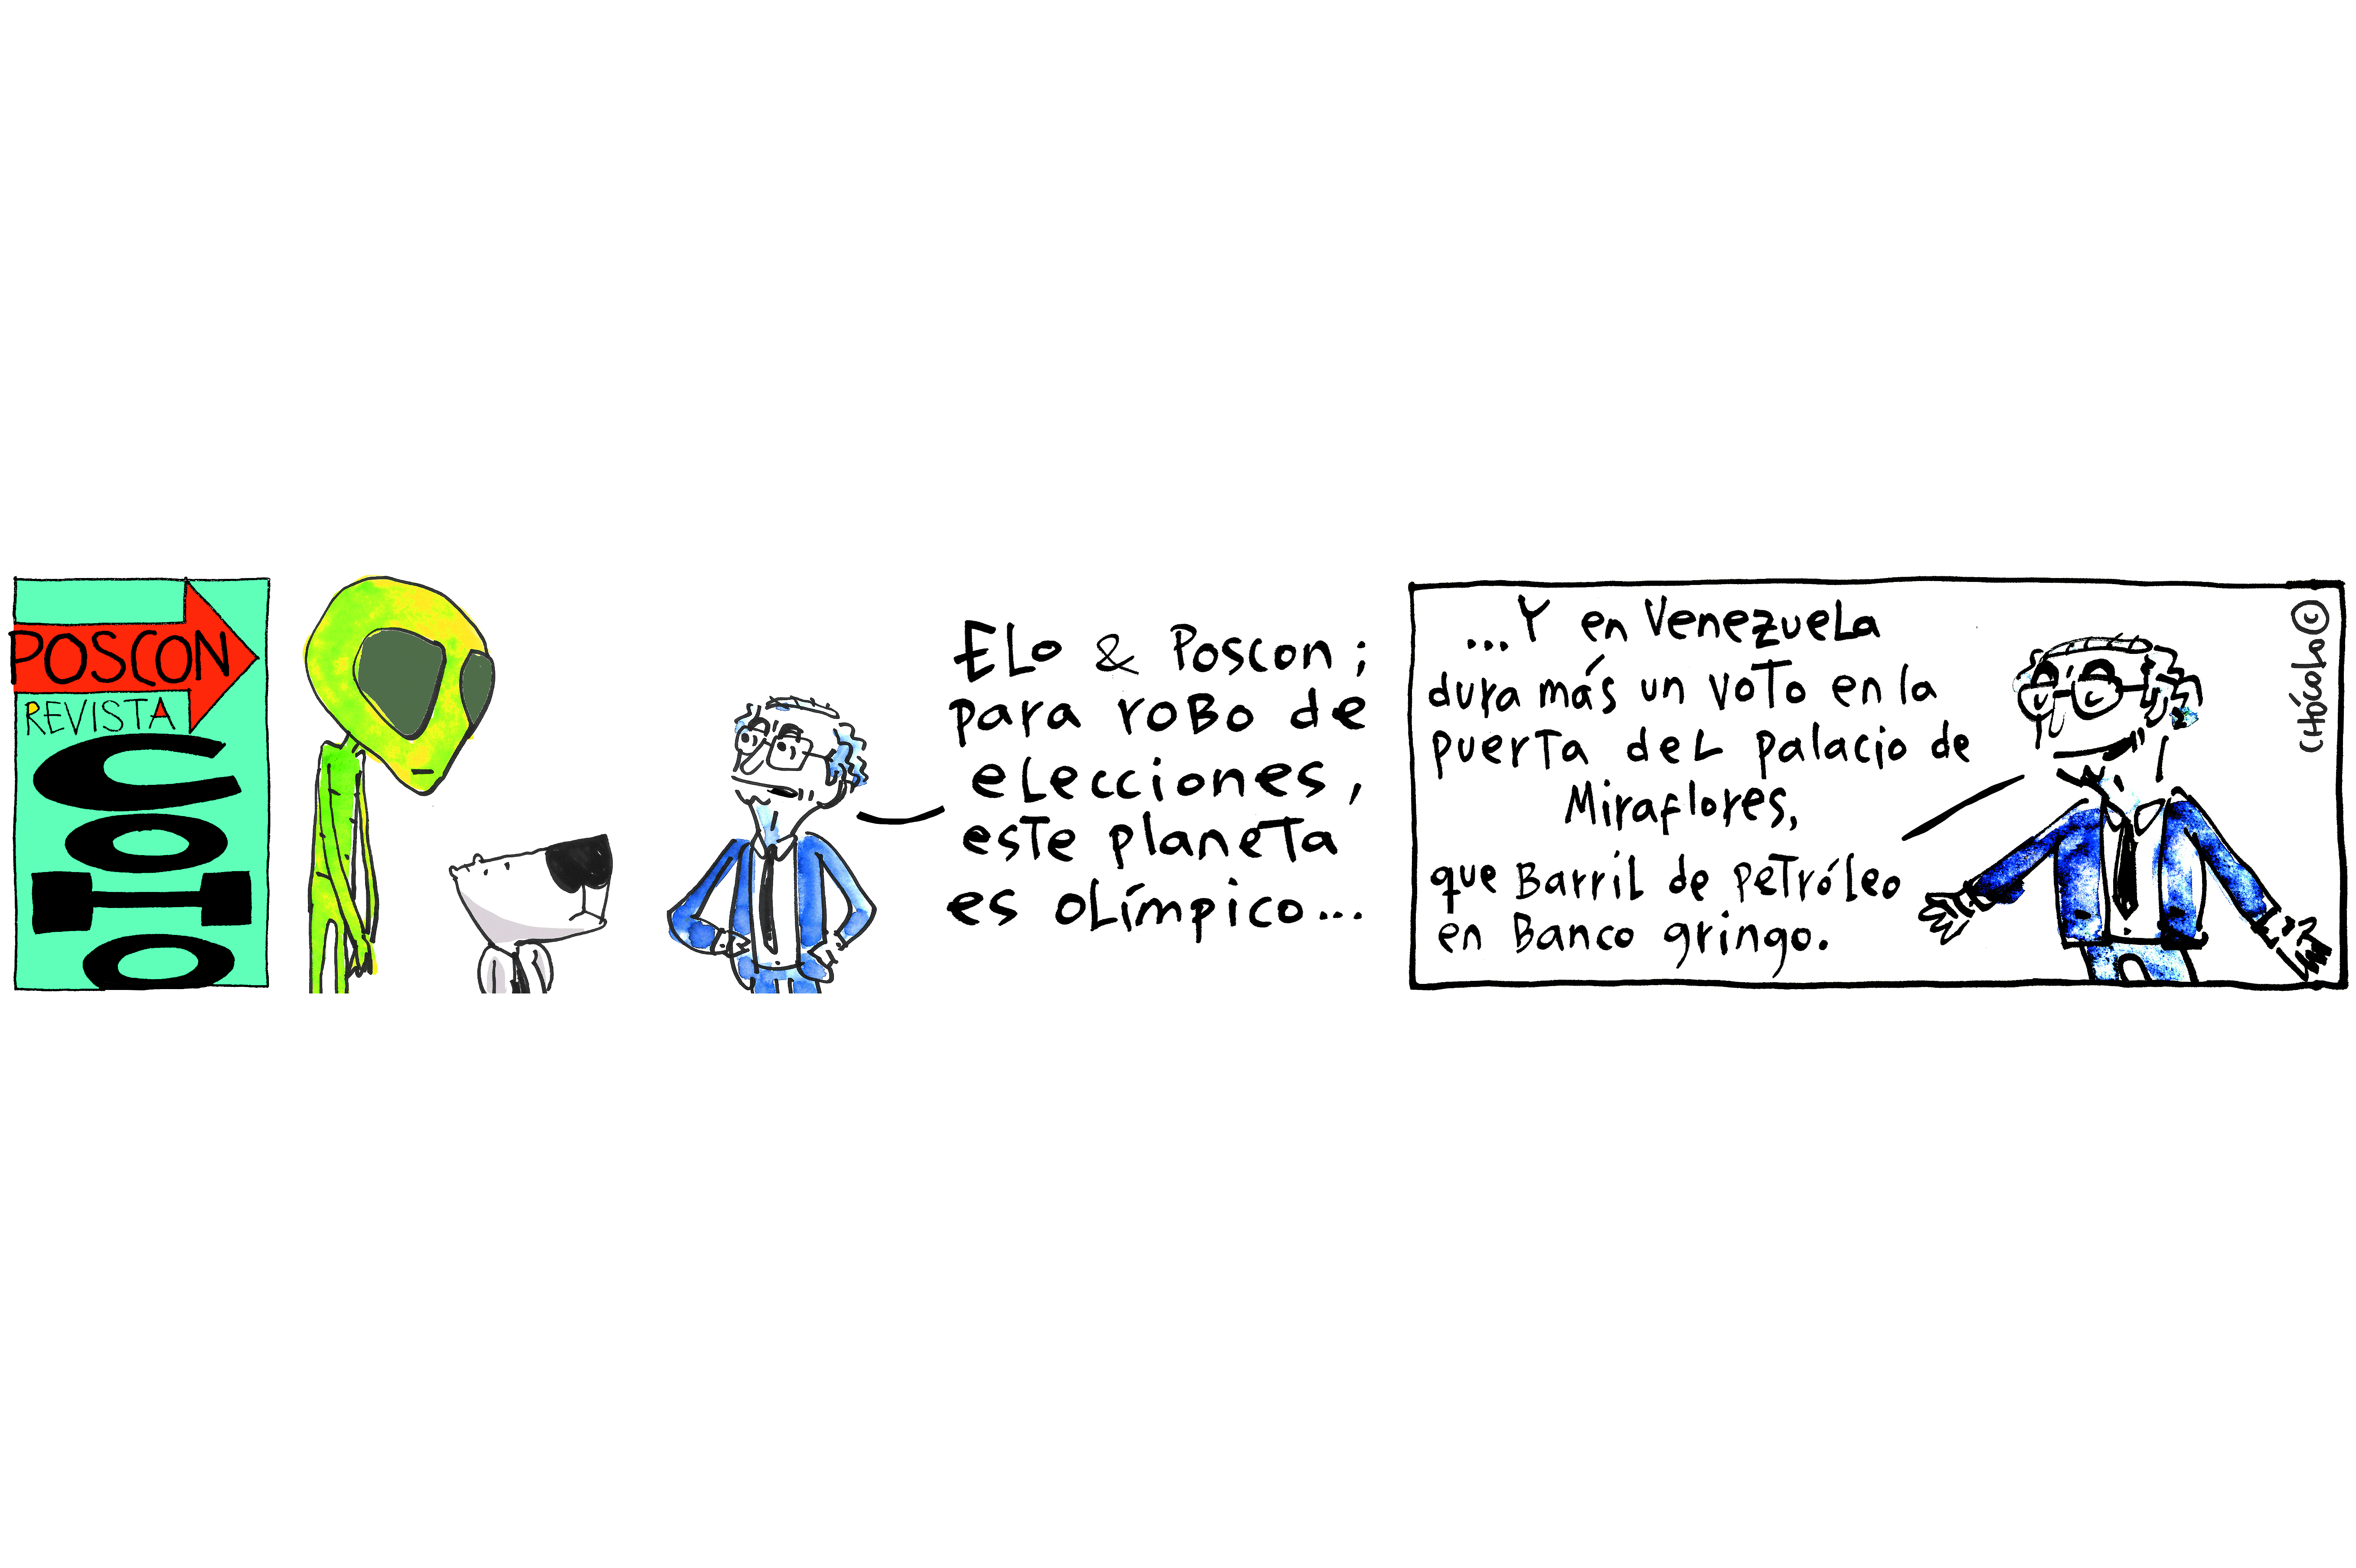 POSCON
REVISTA
COHO
ELo & Poscon;
para robo de
elecciones,
este planeta
es olímpico...
...Y en Venezuela
dura más un voto en la
puerta del palacio de
Miraflores,
que Barril de petróleo
en Banco gringo.
CHócoLo ©